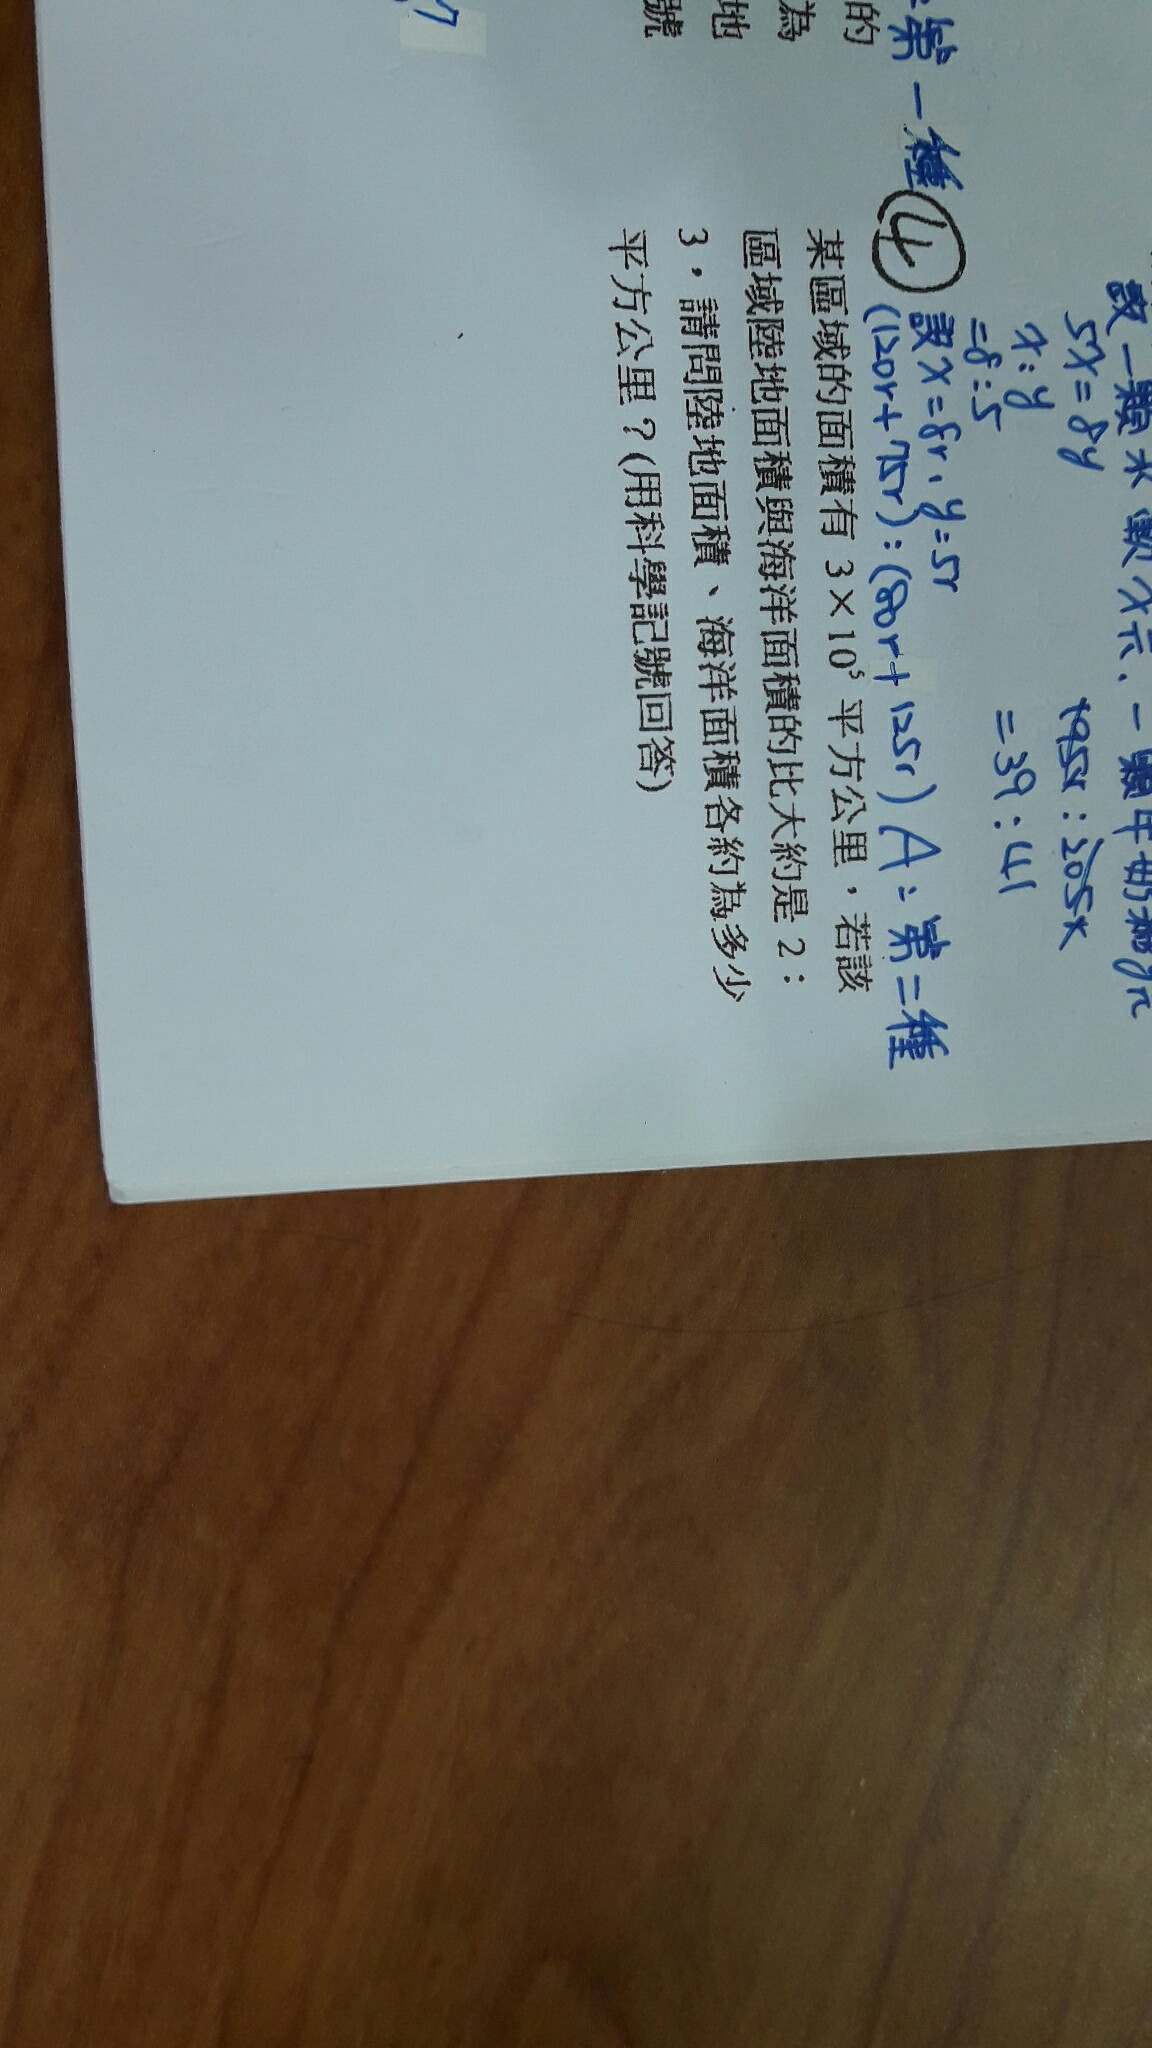 設一顆水
x元、一顆牛奶糖y元
5x=8y
x:y
=8:5
設x=8r,y=5r
(120r+75r):(80r+125r)
195r:205r
=39:41
A:第二種
第一種
的
為
地
號
7
④
某區域的面積有 3×10⁵ 平方公里,若該
區域陸地面積與海洋面積的比大約是 2:
3,請問陸地面積、海洋面積各約為多少
平方公里?(用科學記號回答)